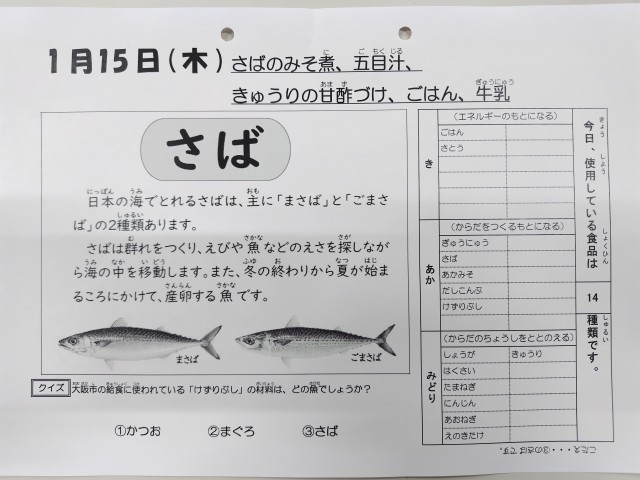 1月15日(木) さばのみそ煮、五目汁、
きゅうりの甘酢づけ、ごはん、牛乳
さば
日本の海でとれるさばは、主に「まさば」と「ごまさ
ば」の2種類あります。
さばは群れをつくり、えびや魚などのえさを探しなが
ら海の中を移動します。また、冬の終わりから夏が始ま
るころにかけて、産卵する魚です。
まさば
ごまさば
クイズ 大阪市の給食に使われている「けずりぶし」の材料は、どの魚でしょうか?
①かつお ②まぐろ ③さば
き
(エネルギーのもとになる)
ごはん
さとう
あか
(からだをつくるもとになる)
ぎゅうにゅう
さば
あかみそ
だしこんぶ
けずりぶし
みどり
(からだのちょうしをととのえる)
しょうが きゅうり
はくさい
たまねぎ
にんじん
あおねぎ
えのきだけ
今日、使用している食品は
14
種類です。
こたえ・・・③のさばです。